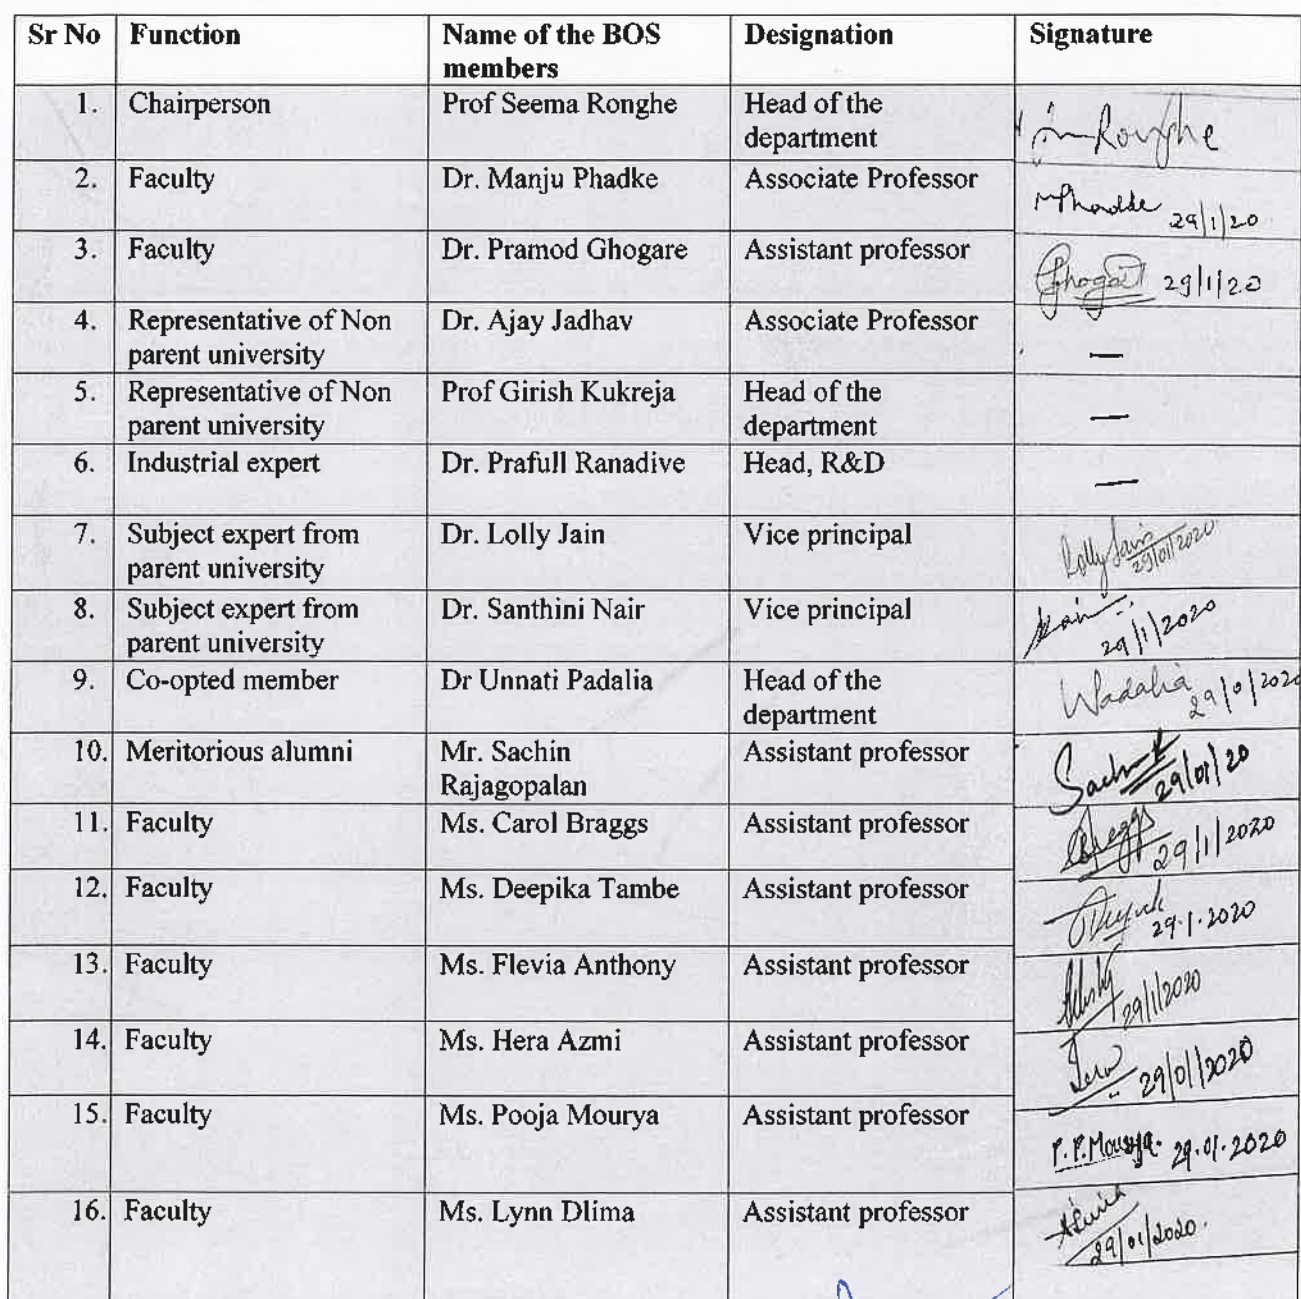 Sr No Function Name of the BOS Designation Signature
members
1. Chairperson Prof Seema Ronghe Head of the
department Ronghe
2. Faculty Dr. Manju Phadke Associate Professor
29/1/20
3. Faculty Dr. Pramod Ghogare Assistant professor
29/1/20
4. Representative of Non Dr. Ajay Jadhav Associate Professor
parent university —
5. Representative of Non Prof Girish Kukreja Head of the
parent university department —
6. Industrial expert Dr. Prafull Ranadive Head, R&D
—
7. Subject expert from Dr. Lolly Jain Vice principal Lolly Jain
parent university 29/01/2020
8. Subject expert from Dr. Santhini Nair Vice principal
parent university 29/1/2020
9. Co-opted member Dr Unnati Padalia Head of the
department 29/0/2020
10. Meritorious alumni Mr. Sachin Assistant professor
Rajagopalan 29/01/20
11. Faculty Ms. Carol Braggs Assistant professor
29/1/2020
12. Faculty Ms. Deepika Tambe Assistant professor
29.1.2020
13. Faculty Ms. Flevia Anthony Assistant professor
29/1/2020
14. Faculty Ms. Hera Azmi Assistant professor
29/01/2020
15. Faculty Ms. Pooja Mourya Assistant professor
P.P.Mourya. 29.01.2020
16. Faculty Ms. Lynn Dlima Assistant professor
29/01/2020.